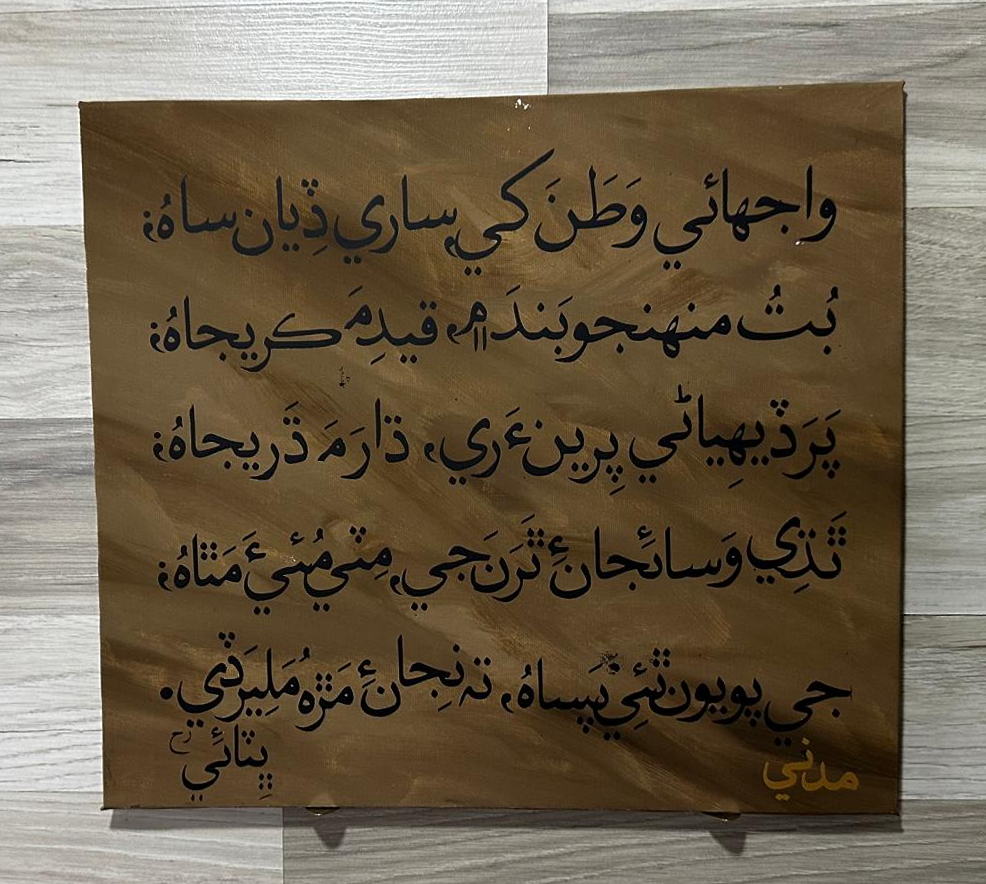 واجهائي وَطَنَ کي، ساري ڏِيان ساهُ؛
بُتُ منهنجو بَندَ ۾، قيدِ مَ ڪريجاهُ؛
پَرَڏيهِياڻي پِرِينءَ ري، ڌارَ مَ ڌَريجاهُ؛
ٿَڌِي وَسائجان ٿَرَنَ جي، مِٽي مُئيءَ مَٿاهُ؛
جي پويون ٿئي پَساهُ، تہ نِجانءِ مَڙهُ مَلِيرَ ڏي.
ڀِٽائي رح
مدني